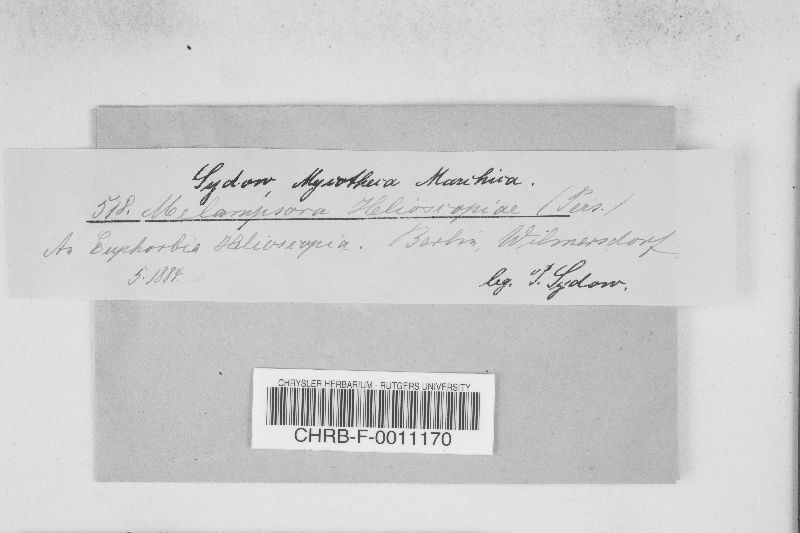 Sydow, Mycotheca Marchica.
518. Melampsora Helioscopiae (Pers.)
An Euphorbia Helioscopia. Berlin, Wilmersdorf.
5. 1884.
leg. P. Sydow.
CHRYSLER HERBARIUM - RUTGERS UNIVERSITY
CHRB-F-0011170